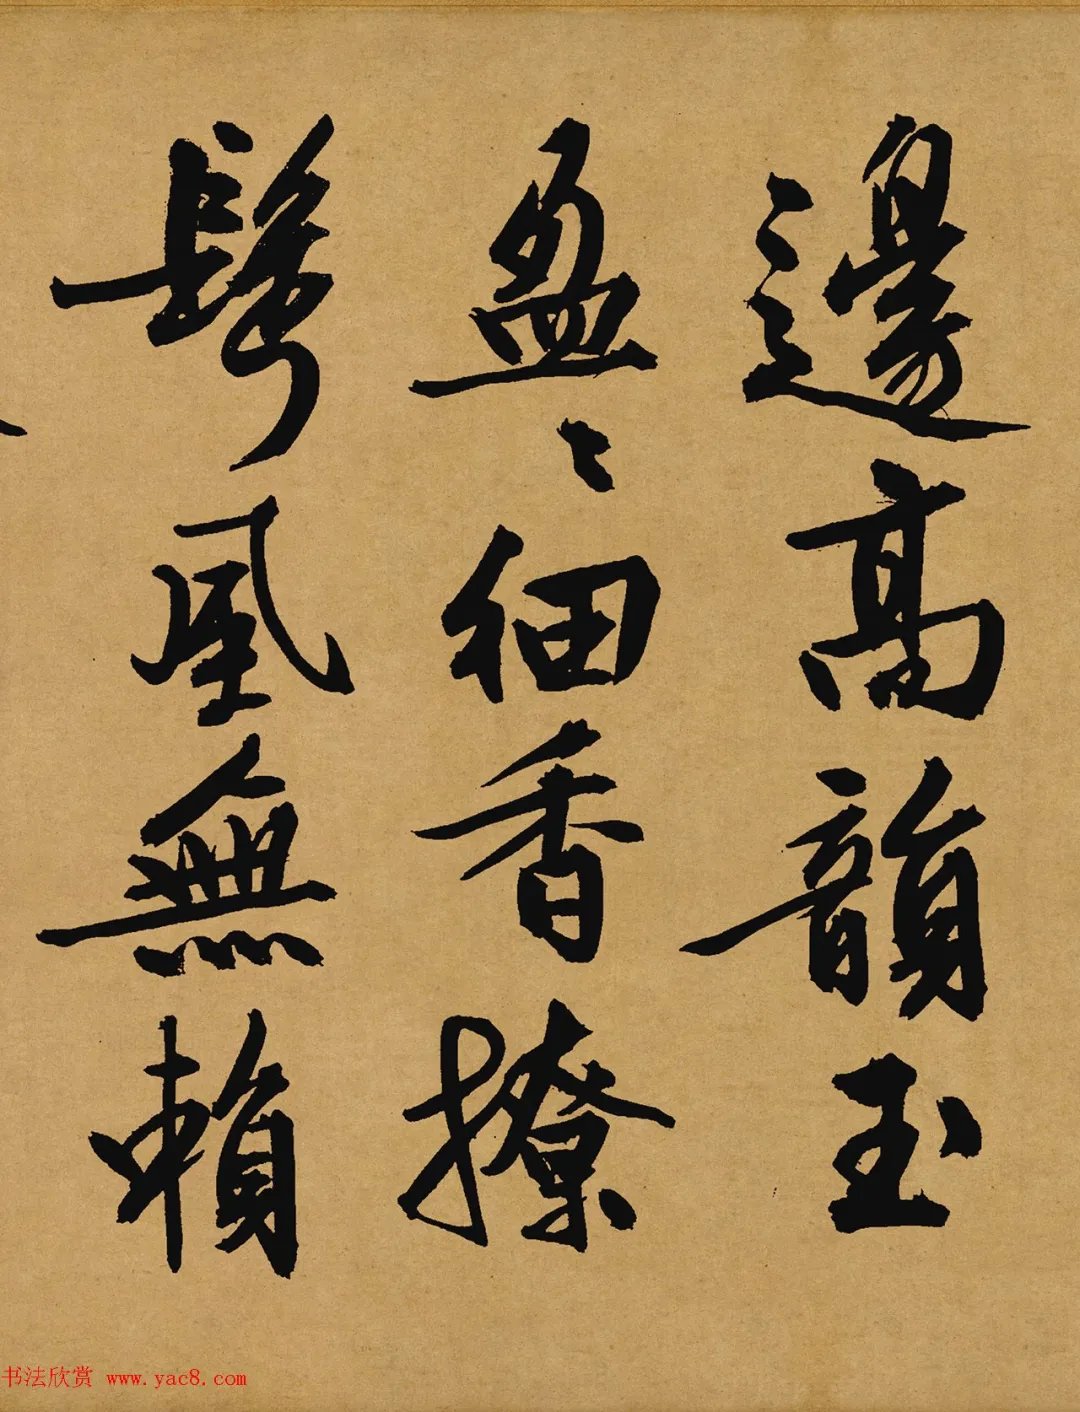 邊高韻玉
盈〻細香撩
鬓風無賴
书法欣赏 www.yac8.com